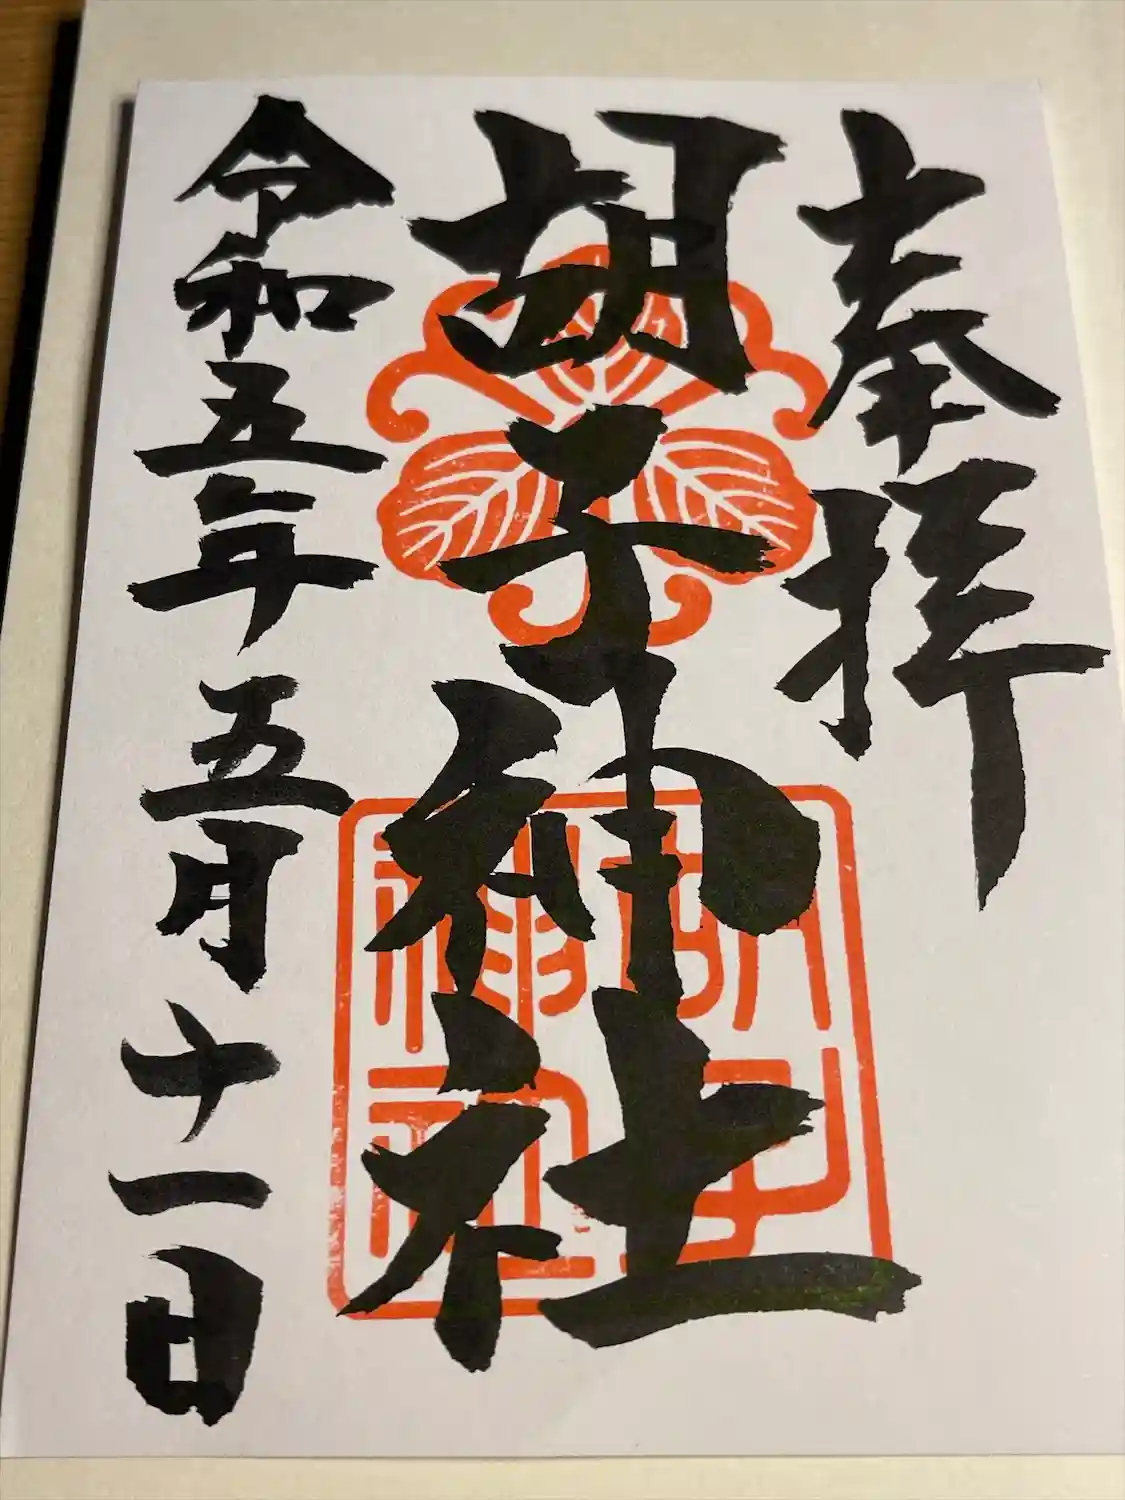 奉拝
胡子神社
令和五年五月十一日
胡子
神社